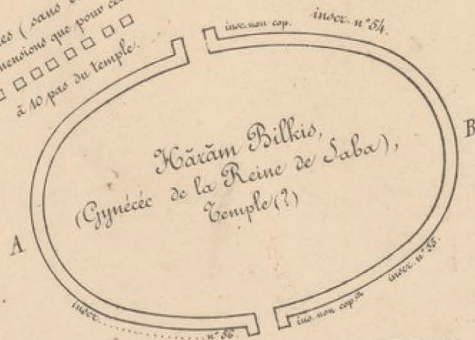 es (sans
mensions que pour ce
à 10 pas du temple.
insc. non cop. inscr. n° 54.
Hărăm Bilkis,
(Gynécée de la Reine de Saba),
Temple (?)
A
B
inscr. n° 55.
ins. non cop.
inscr. . . . . . . . . . . . n° 56.